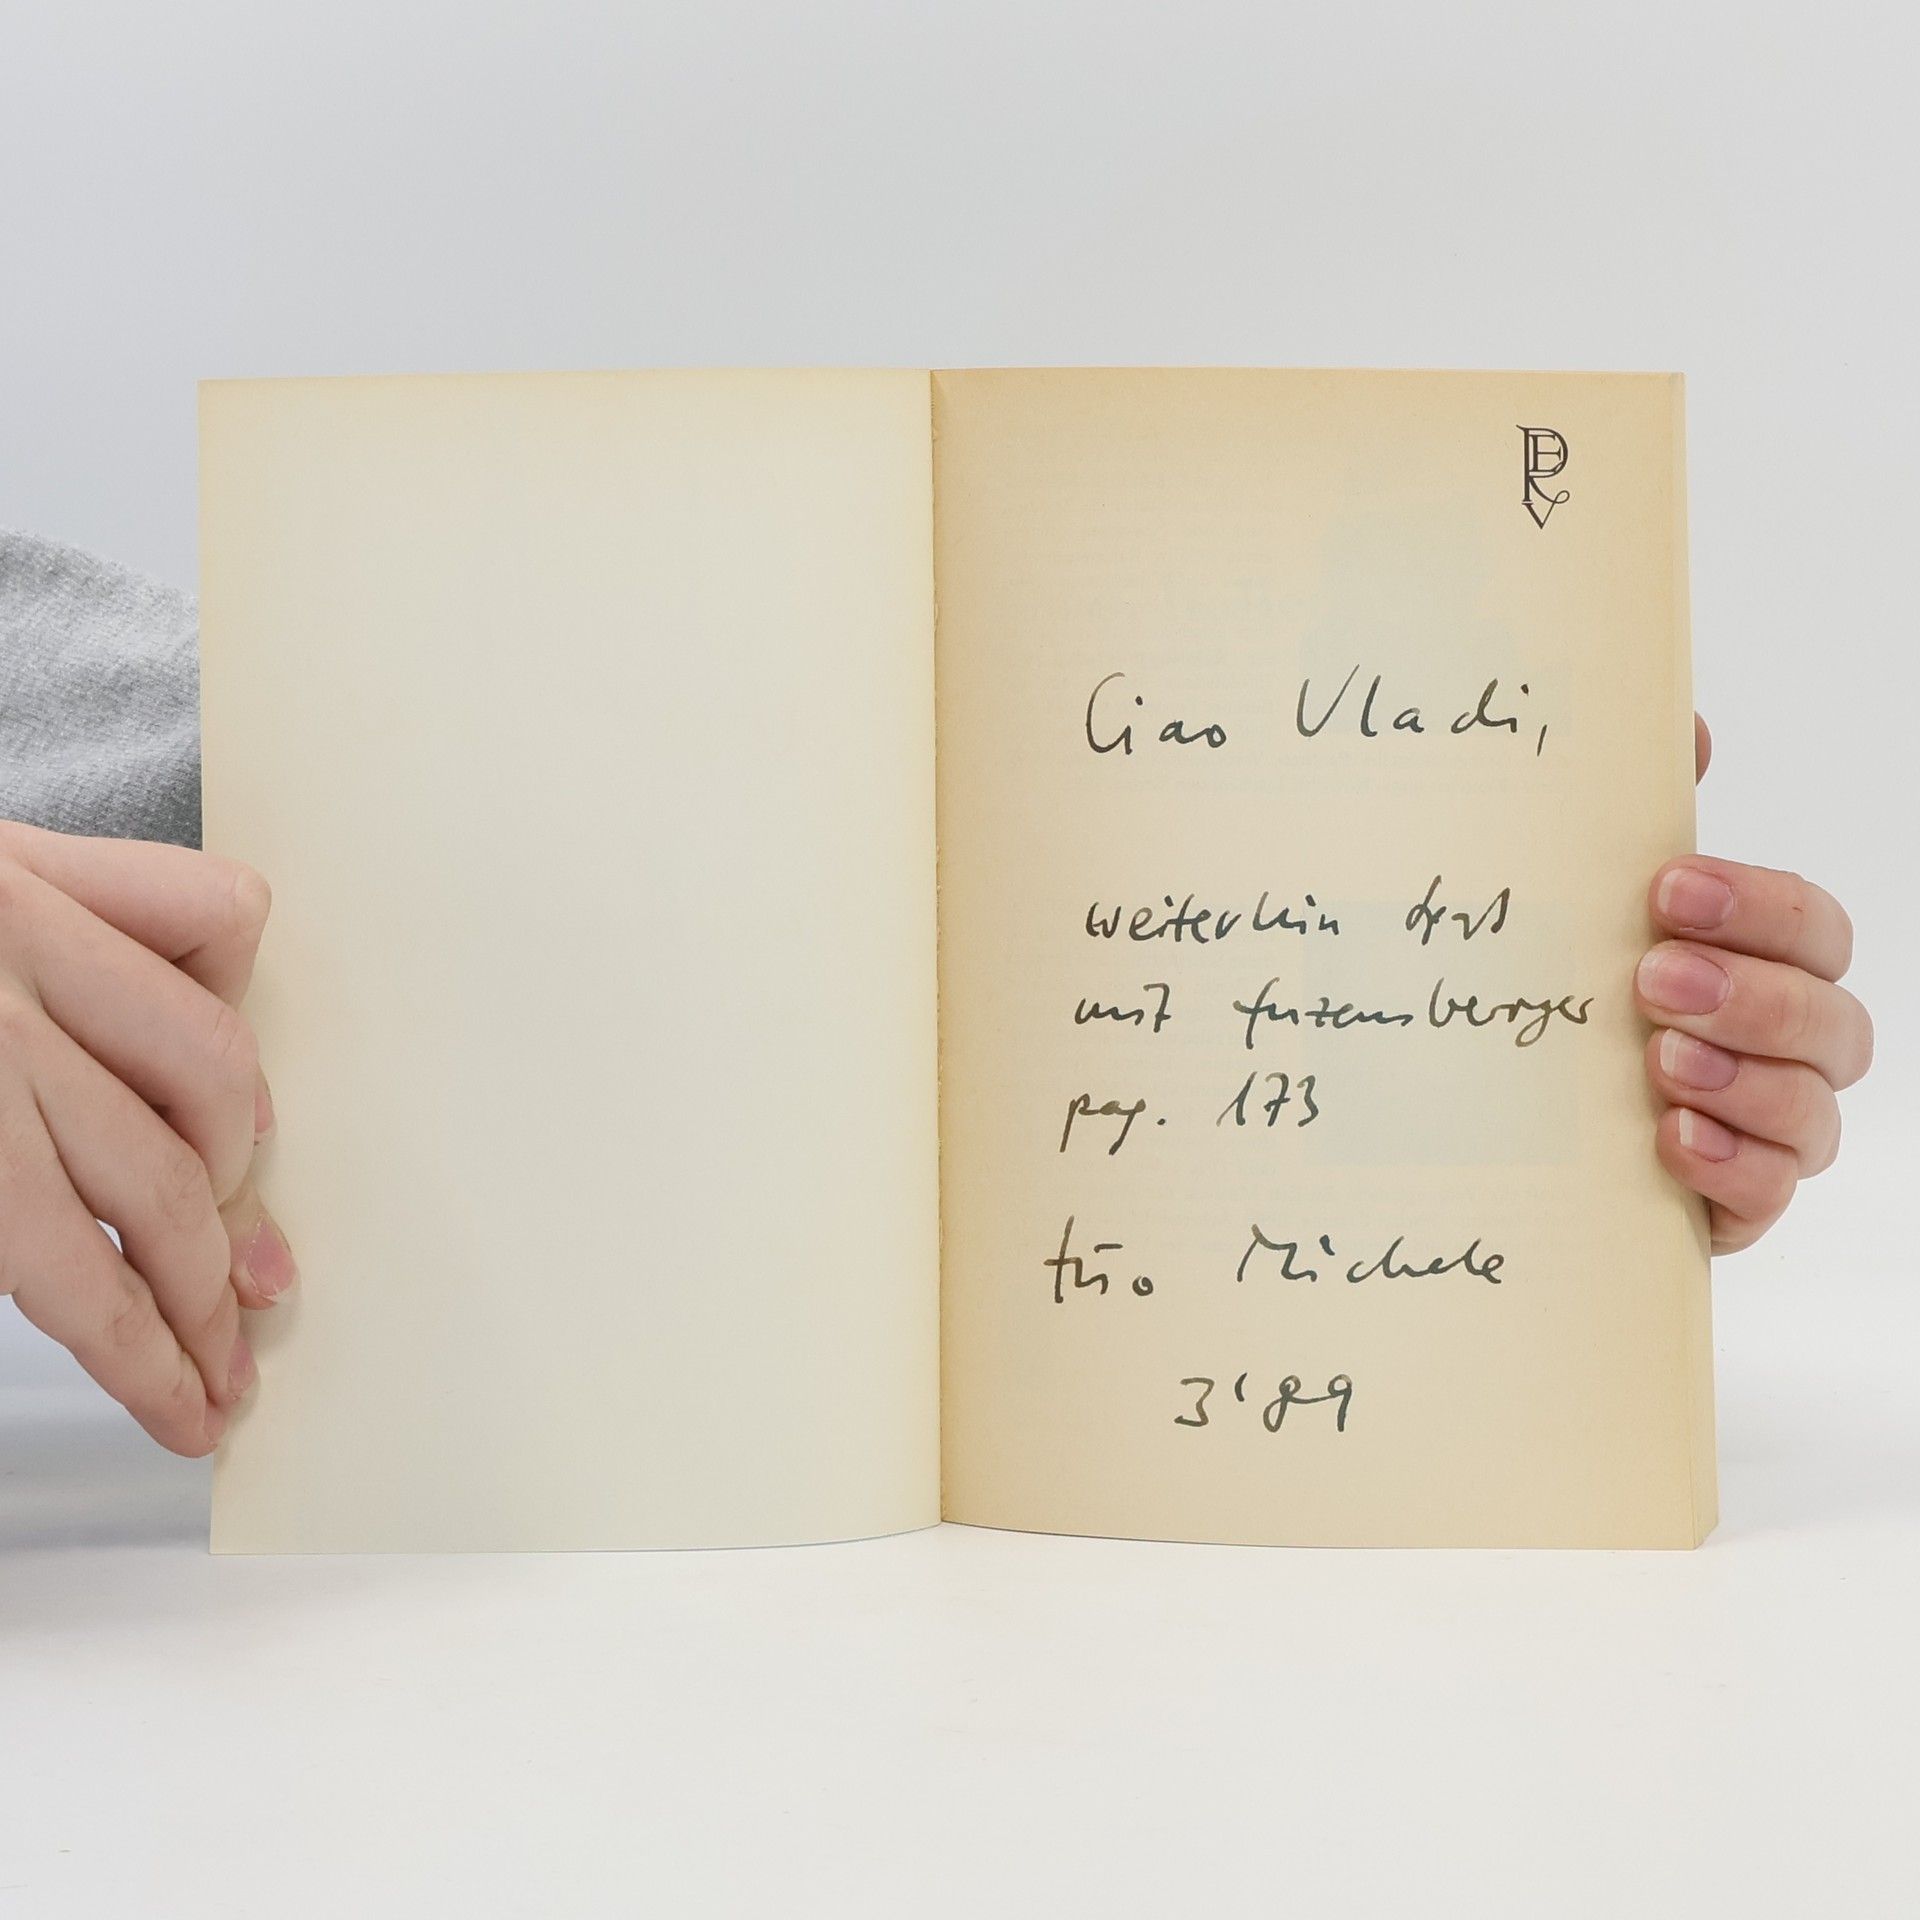 Ciao Vladi,
weiterhin
mit Enzensberger
pag. 173
tuo Michele
3'89